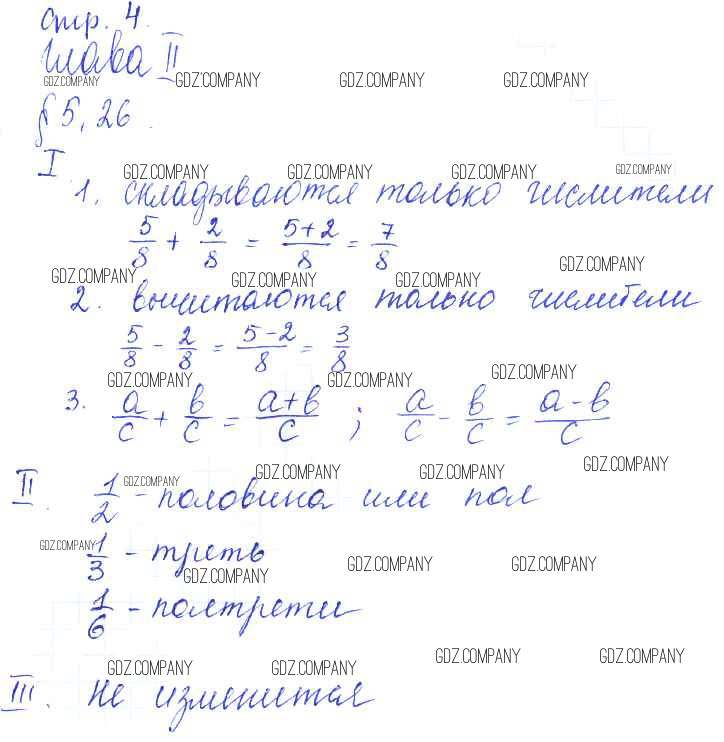 стр. 4.
Глава II
GDZ.COMPANY GDZ.COMPANY GDZ.COMPANY GDZ.COMPANY
§ 5, 26.
I
GDZ.COMPANY GDZ.COMPANY GDZ.COMPANY GDZ.COMPANY
1. складываются только числители
5/8 + 2/8 = (5+2)/8 = 7/8
GDZ.COMPANY GDZ.COMPANY GDZ.COMPANY GDZ.COMPANY
2. вычитаются только числители
5/8 - 2/8 = (5-2)/8 = 3/8
GDZ.COMPANY GDZ.COMPANY GDZ.COMPANY
3. a/c + в/c = (a+в)/c ; a/c - в/c = (a-в)/c
GDZ.COMPANY GDZ.COMPANY GDZ.COMPANY GDZ.COMPANY
II. 1/2 - половина или пол
GDZ.COMPANY GDZ.COMPANY GDZ.COMPANY GDZ.COMPANY
1/3 - треть
1/6 - полтрети
GDZ.COMPANY GDZ.COMPANY GDZ.COMPANY GDZ.COMPANY
III. Не изменится